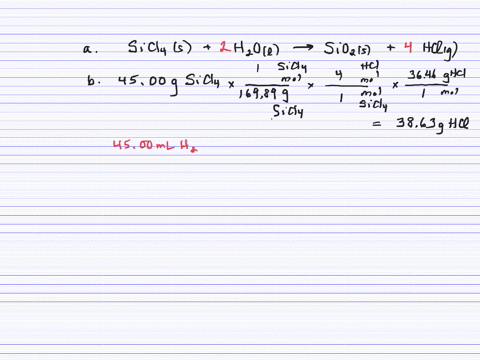 a. SiCl4(s) + 2H2O(l) → SiO2(s) + 4 HCl(g)
b. 45.00 g SiCl4 × 1 mol SiCl4 / 169.89 g SiCl4 × 4 mol HCl / 1 mol SiCl4 × 36.46 g HCl / 1 mol
= 38.63 g HCl
45.00 mL H2